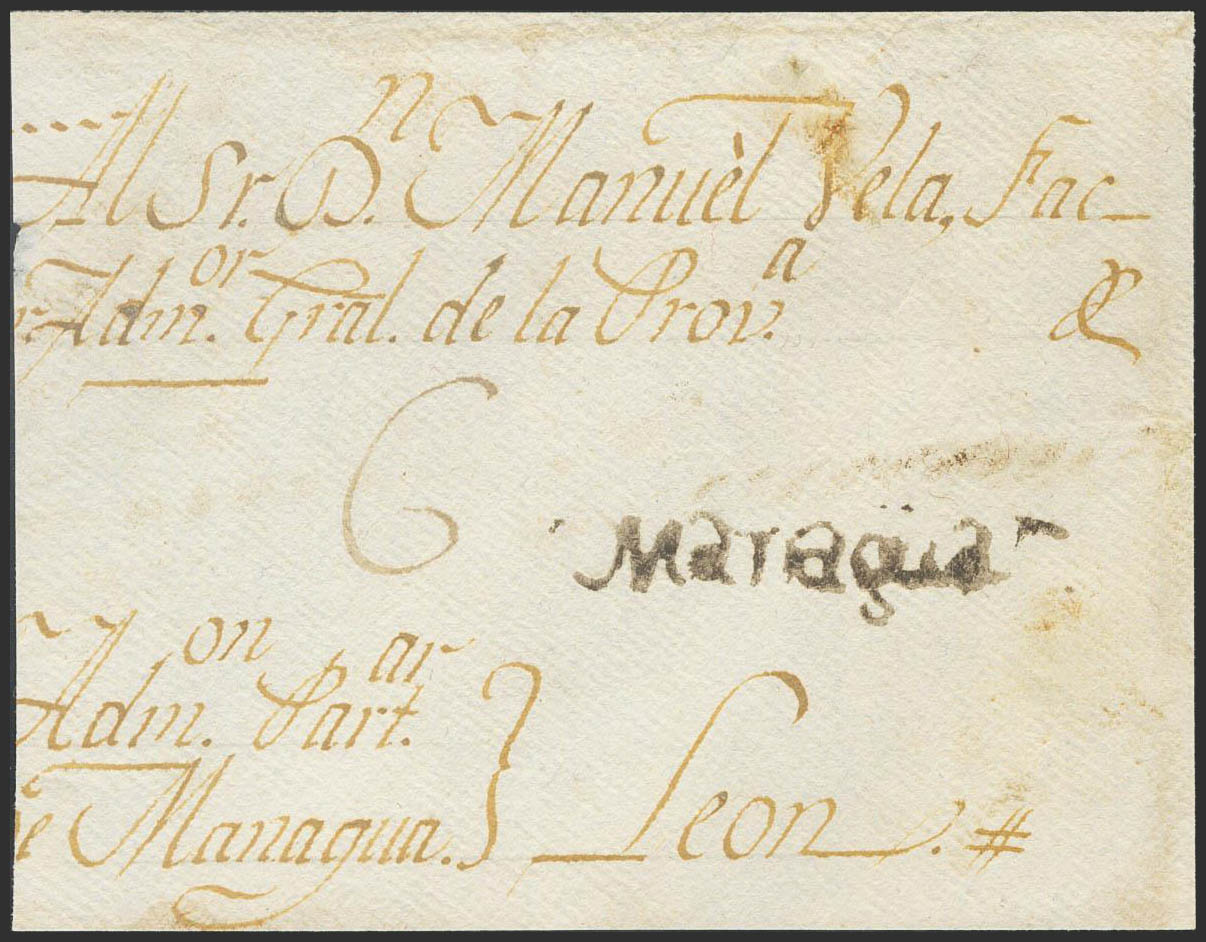 Al Sr. Dⁿ. Manuèl Vela, Fac-
r Admᵒʳ. Gral. de la Provᵃ. &
6
Managua
Admᵒⁿ. Partᵃʳ.
de Managua. } Leon. #